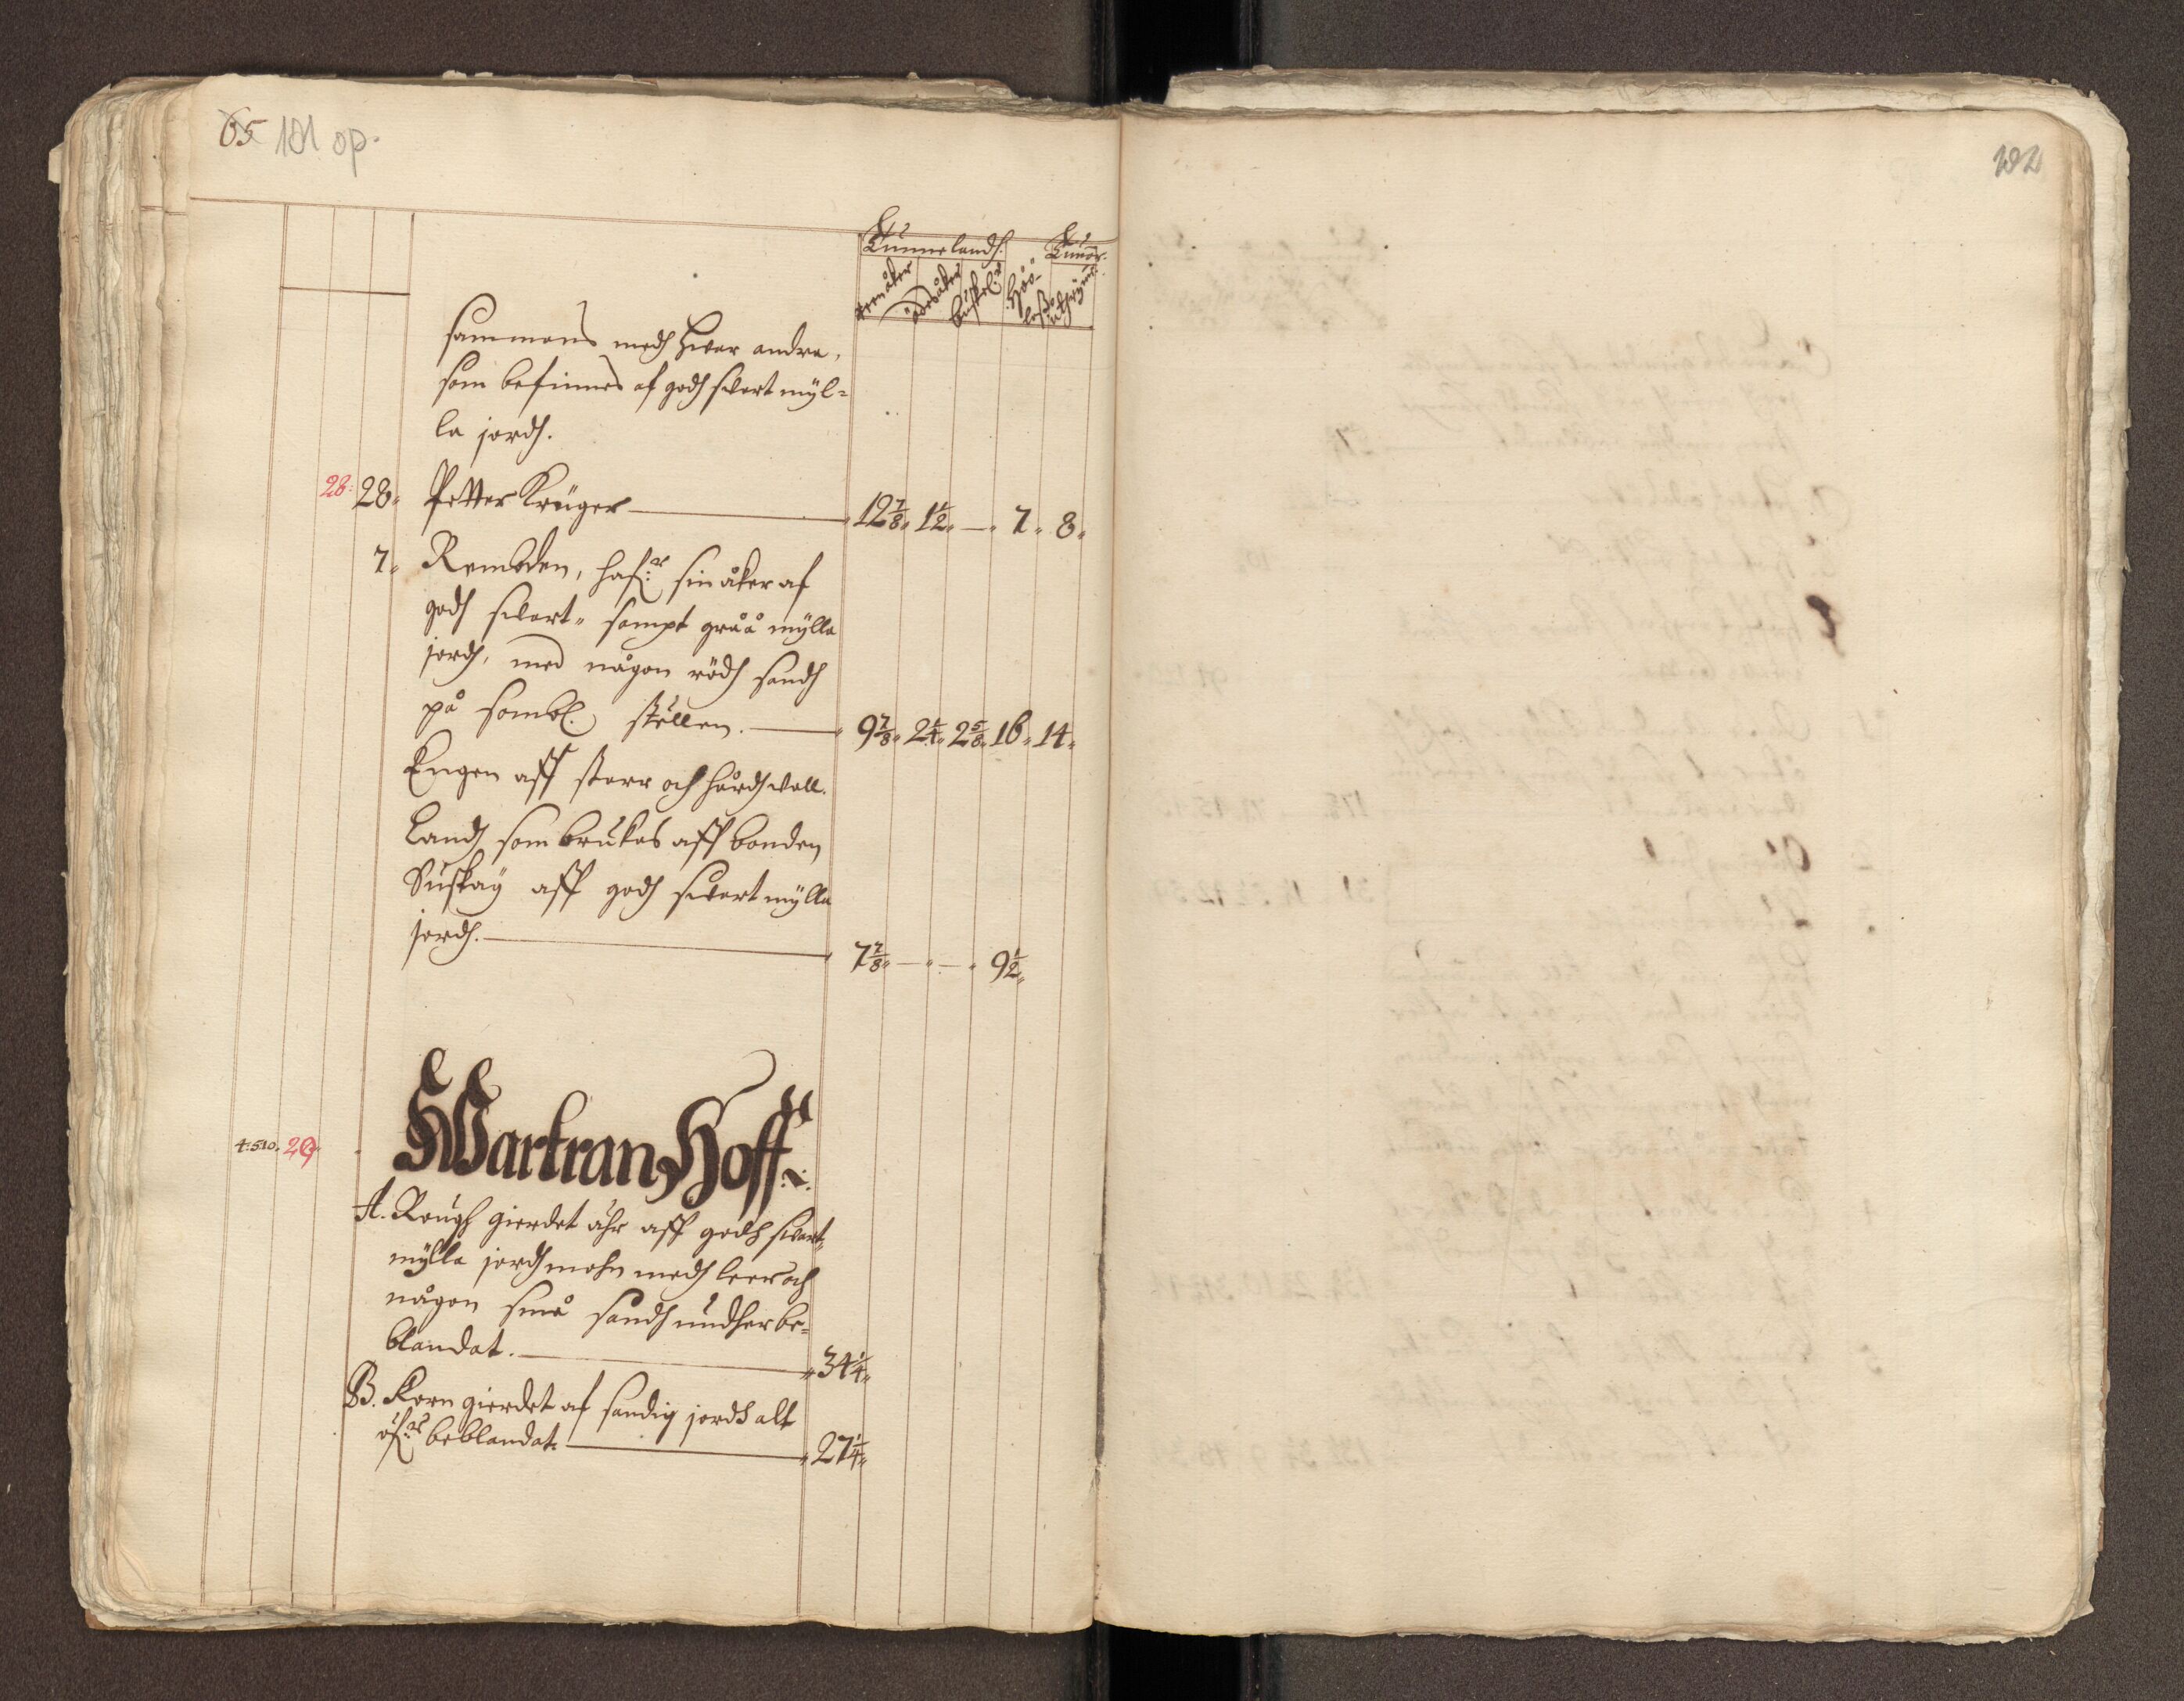 65 101 op.
102
Tunnelandh. Tunor.
åker ödesåker buskel: Höö- laß utsäj
sammans medh hwar andra,
som befinnes af godh swart myl=
la jordh.
28: 28. Petter Krüger 12 7/8. 1 1/2. — 7. 8.
7. Remboden, haf:r sin åker af
godh swart. sampt gråå mylla
jordh, med någon rödh sandh
på sombl. ställen. 9 7/8. 2 1/4. 2 5/8. 16. 14.
Engen aff starr och hårdhwall.
Landh som brukas aff bonden
Suskaÿ aff godh swart mylla
jordh. 7 7/8. — — 9 1/2.
4:510. 29. Wartran Hoff.
A. Rough gierdet ähr aff godh swart
mylla jordhmohn medh leer och
någon små sandh undher be=
blandat. 34 1/4.
B. Korn gierdet af sandig jordh alt
öf:r beblandat. 27 1/4.